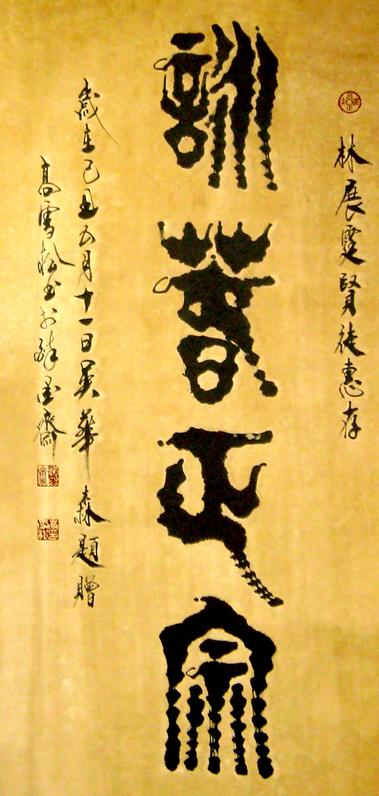 林展霆賢徒惠存
訓蒙正宗
歲在己丑五月十一日吴華森題贈
高雪松书於醉墨齋